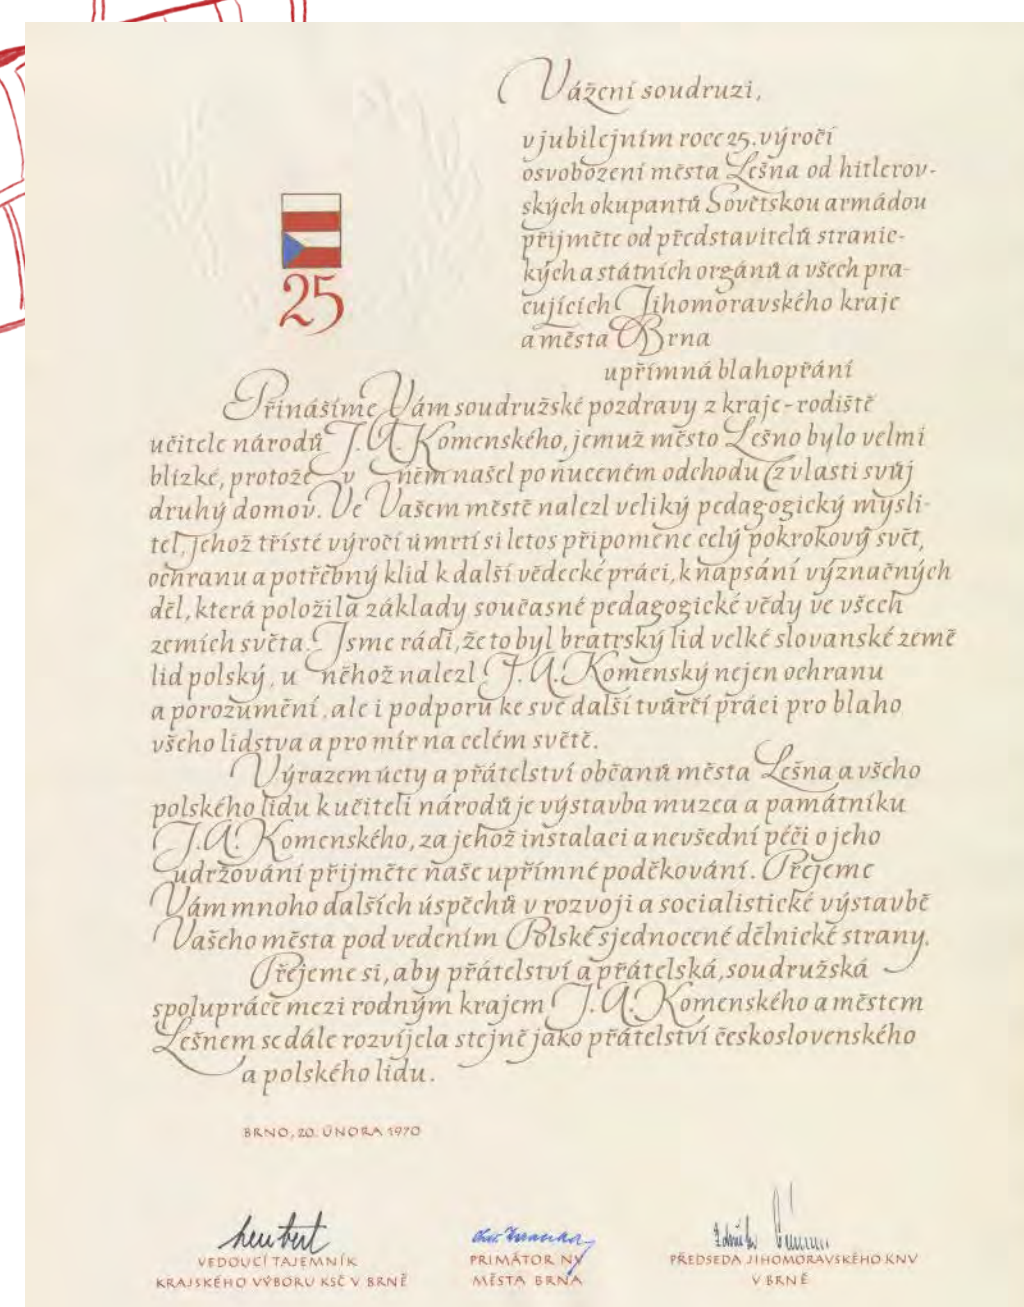 Vážení soudruzi,
v jubilejním roce 25. výročí
osvobození města Lešna od hitlerov-
ských okupantů Sovětskou armádou
přijměte od představitelů stranic-
kých a státních orgánů a všech pra-
cujících Jihomoravského kraje
a města Brna
upřímná blahopřání
25
Přinášíme Vám soudružské pozdravy z kraje - rodiště
učitele národů J. A. Komenského, jemuž město Lešno bylo velmi
blízké, protože v něm našel po nuceném odchodu z vlasti svůj
druhý domov. Ve Vašem městě nalezl veliký pedagogický mysli-
tel, jehož třísté výročí úmrtí si letos připomene celý pokrokový svět,
ochranu a potřebný klid k další vědecké práci, k napsání význačných
děl, která položila základy současné pedagogické vědy ve všech
zemích světa. Jsme rádi, že to byl bratrský lid velké slovanské země
lid polský, u něhož nalezl J. A. Komenský nejen ochranu
a porozumění, ale i podporu ke své další tvůrčí práci pro blaho
všeho lidstva a pro mír na celém světě.
Výrazem úcty a přátelství občanů města Lešna a všeho
polského lidu k učiteli národů je výstavba muzea a památníku
J. A. Komenského, za jehož instalaci a nevšední péči o jeho
udržování přijměte naše upřímné poděkování. Přejeme
Vám mnoho dalších úspěchů v rozvoji a socialistické výstavbě
Vašeho města pod vedením Polské sjednocené dělnické strany.
Přejeme si, aby přátelství a přátelská, soudružská
spolupráce mezi rodným krajem J. A. Komenského a městem
Lešnem se dále rozvíjela stejně jako přátelství československého
a polského lidu.
BRNO, 20. ÚNORA 1970
VEDOUCÍ TAJEMNÍK
KRAJSKÉHO VÝBORU KSČ V BRNĚ
PRIMÁTOR NV
MĚSTA BRNA
PŘEDSEDA JIHOMORAVSKÉHO KNV
V BRNĚ